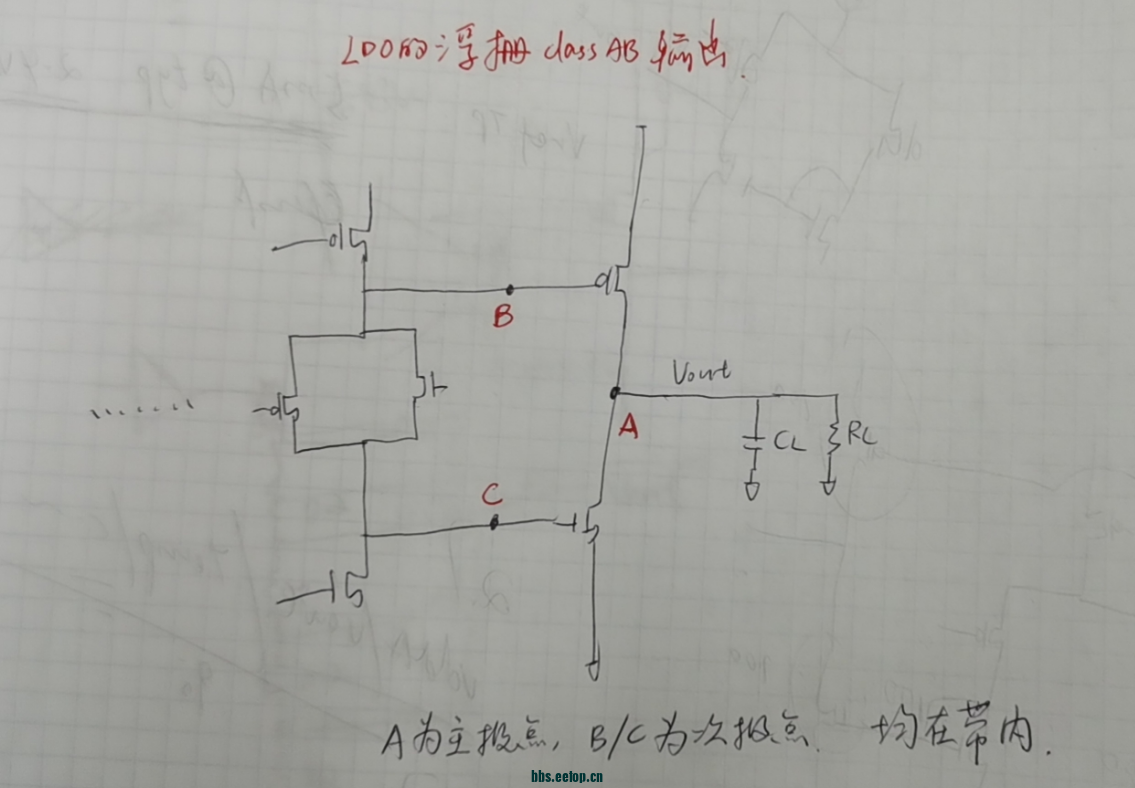 LDO的浮栅 class AB 输出.
B
Vout
A
CL
RL
C
A为主极点, B/C为次极点. 均在带内.
bbs.eetop.cn